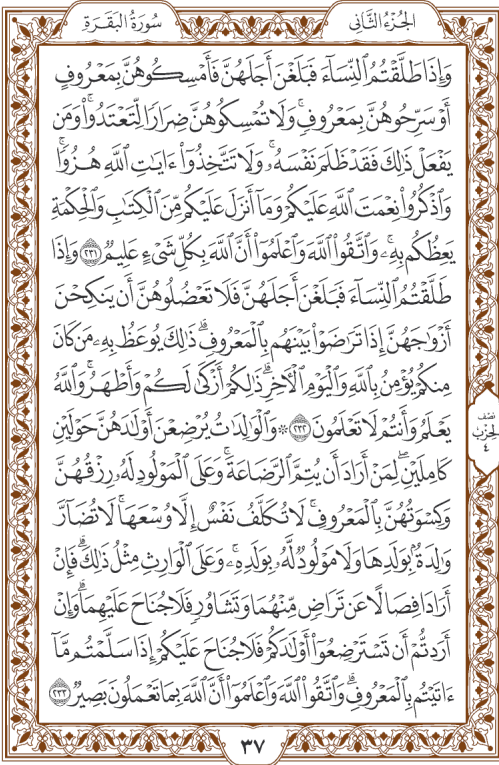 سُورَةُ البَقَرَةِ
الجُزْءُ الثَّانِي
وَإِذَا طَلَّقْتُمُ ٱلنِّسَآءَ فَبَلَغْنَ أَجَلَهُنَّ فَأَمْسِكُوهُنَّ بِمَعْرُوفٍ
أَوْ سَرِّحُوهُنَّ بِمَعْرُوفٖۚ وَلَا تُمْسِكُوهُنَّ ضِرَارٗا لِّتَعْتَدُواْۚ وَمَن
يَفْعَلْ ذَٰلِكَ فَقَدْ ظَلَمَ نَفْسَهُۥۚ وَلَا تَتَّخِذُوٓاْ ءَايَٰتِ ٱللَّهِ هُزُوٗاۚ
وَٱذْكُرُواْ نِعْمَتَ ٱللَّهِ عَلَيْكُمْ وَمَآ أَنزَلَ عَلَيْكُم مِّنَ ٱلْكِتَٰبِ وَٱلْحِكْمَةِ
يَعِظُكُم بِهِۦۚ وَٱتَّقُواْ ٱللَّهَ وَٱعْلَمُوٓاْ أَنَّ ٱللَّهَ بِكُلِّ شَيْءٍ عَلِيمٞ ٢٣١ وَإِذَا
طَلَّقْتُمُ ٱلنِّسَآءَ فَبَلَغْنَ أَجَلَهُنَّ فَلَا تَعْضُلُوهُنَّ أَن يَنكِحْنَ
أَزْوَٰجَهُنَّ إِذَا تَرَٰضَوْاْ بَيْنَهُم بِٱلْمَعْرُوفِۗ ذَٰلِكَ يُوعَظُ بِهِۦ مَن كَانَ
مِنكُمْ يُؤْمِنُ بِٱللَّهِ وَٱلْيَوْمِ ٱلْأٓخِرِۗ ذَٰلِكُمْ أَزْكَىٰ لَكُمْ وَأَطْهَرُۚ وَٱللَّهُ
يَعْلَمُ وَأَنتُمْ لَا تَعْلَمُونَ ٢٣٢ ۞ وَٱلْوَٰلِدَٰتُ يُرْضِعْنَ أَوْلَٰدَهُنَّ حَوْلَيْنِ
كَامِلَيْنِۖ لِمَنْ أَرَادَ أَن يُتِمَّ ٱلرَّضَاعَةَۚ وَعَلَى ٱلْمَوْلُودِ لَهُۥ رِزْقُهُنَّ
وَكِسْوَتُهُنَّ بِٱلْمَعْرُوفِۚ لَا تُكَلَّفُ نَفْسٌ إِلَّا وُسْعَهَاۚ لَا تُضَآرَّ
وَٰلِدَةُۢ بِوَلَدِهَا وَلَا مَوْلُودٞ لَّهُۥ بِوَلَدِهِۦۚ وَعَلَى ٱلْوَارِثِ مِثْلُ ذَٰلِكَۗ فَإِنْ
أَرَادَا فِصَالًا عَن تَرَاضٖ مِّنْهُمَا وَتَشَاوُرٖ فَلَا جُنَاحَ عَلَيْهِمَاۗ وَإِنْ
أَرَدتُّمْ أَن تَسْتَرْضِعُوٓاْ أَوْلَٰدَكُمْ فَلَا جُنَاحَ عَلَيْكُمْ إِذَا سَلَّمْتُم مَّآ
ءَاتَيْتُم بِٱلْمَعْرُوفِۗ وَٱتَّقُواْ ٱللَّهَ وَٱعْلَمُوٓاْ أَنَّ ٱللَّهَ بِمَا تَعْمَلُونَ بَصِيرٞ ٢٣٣
نصف
الحزب
٤
٣٧